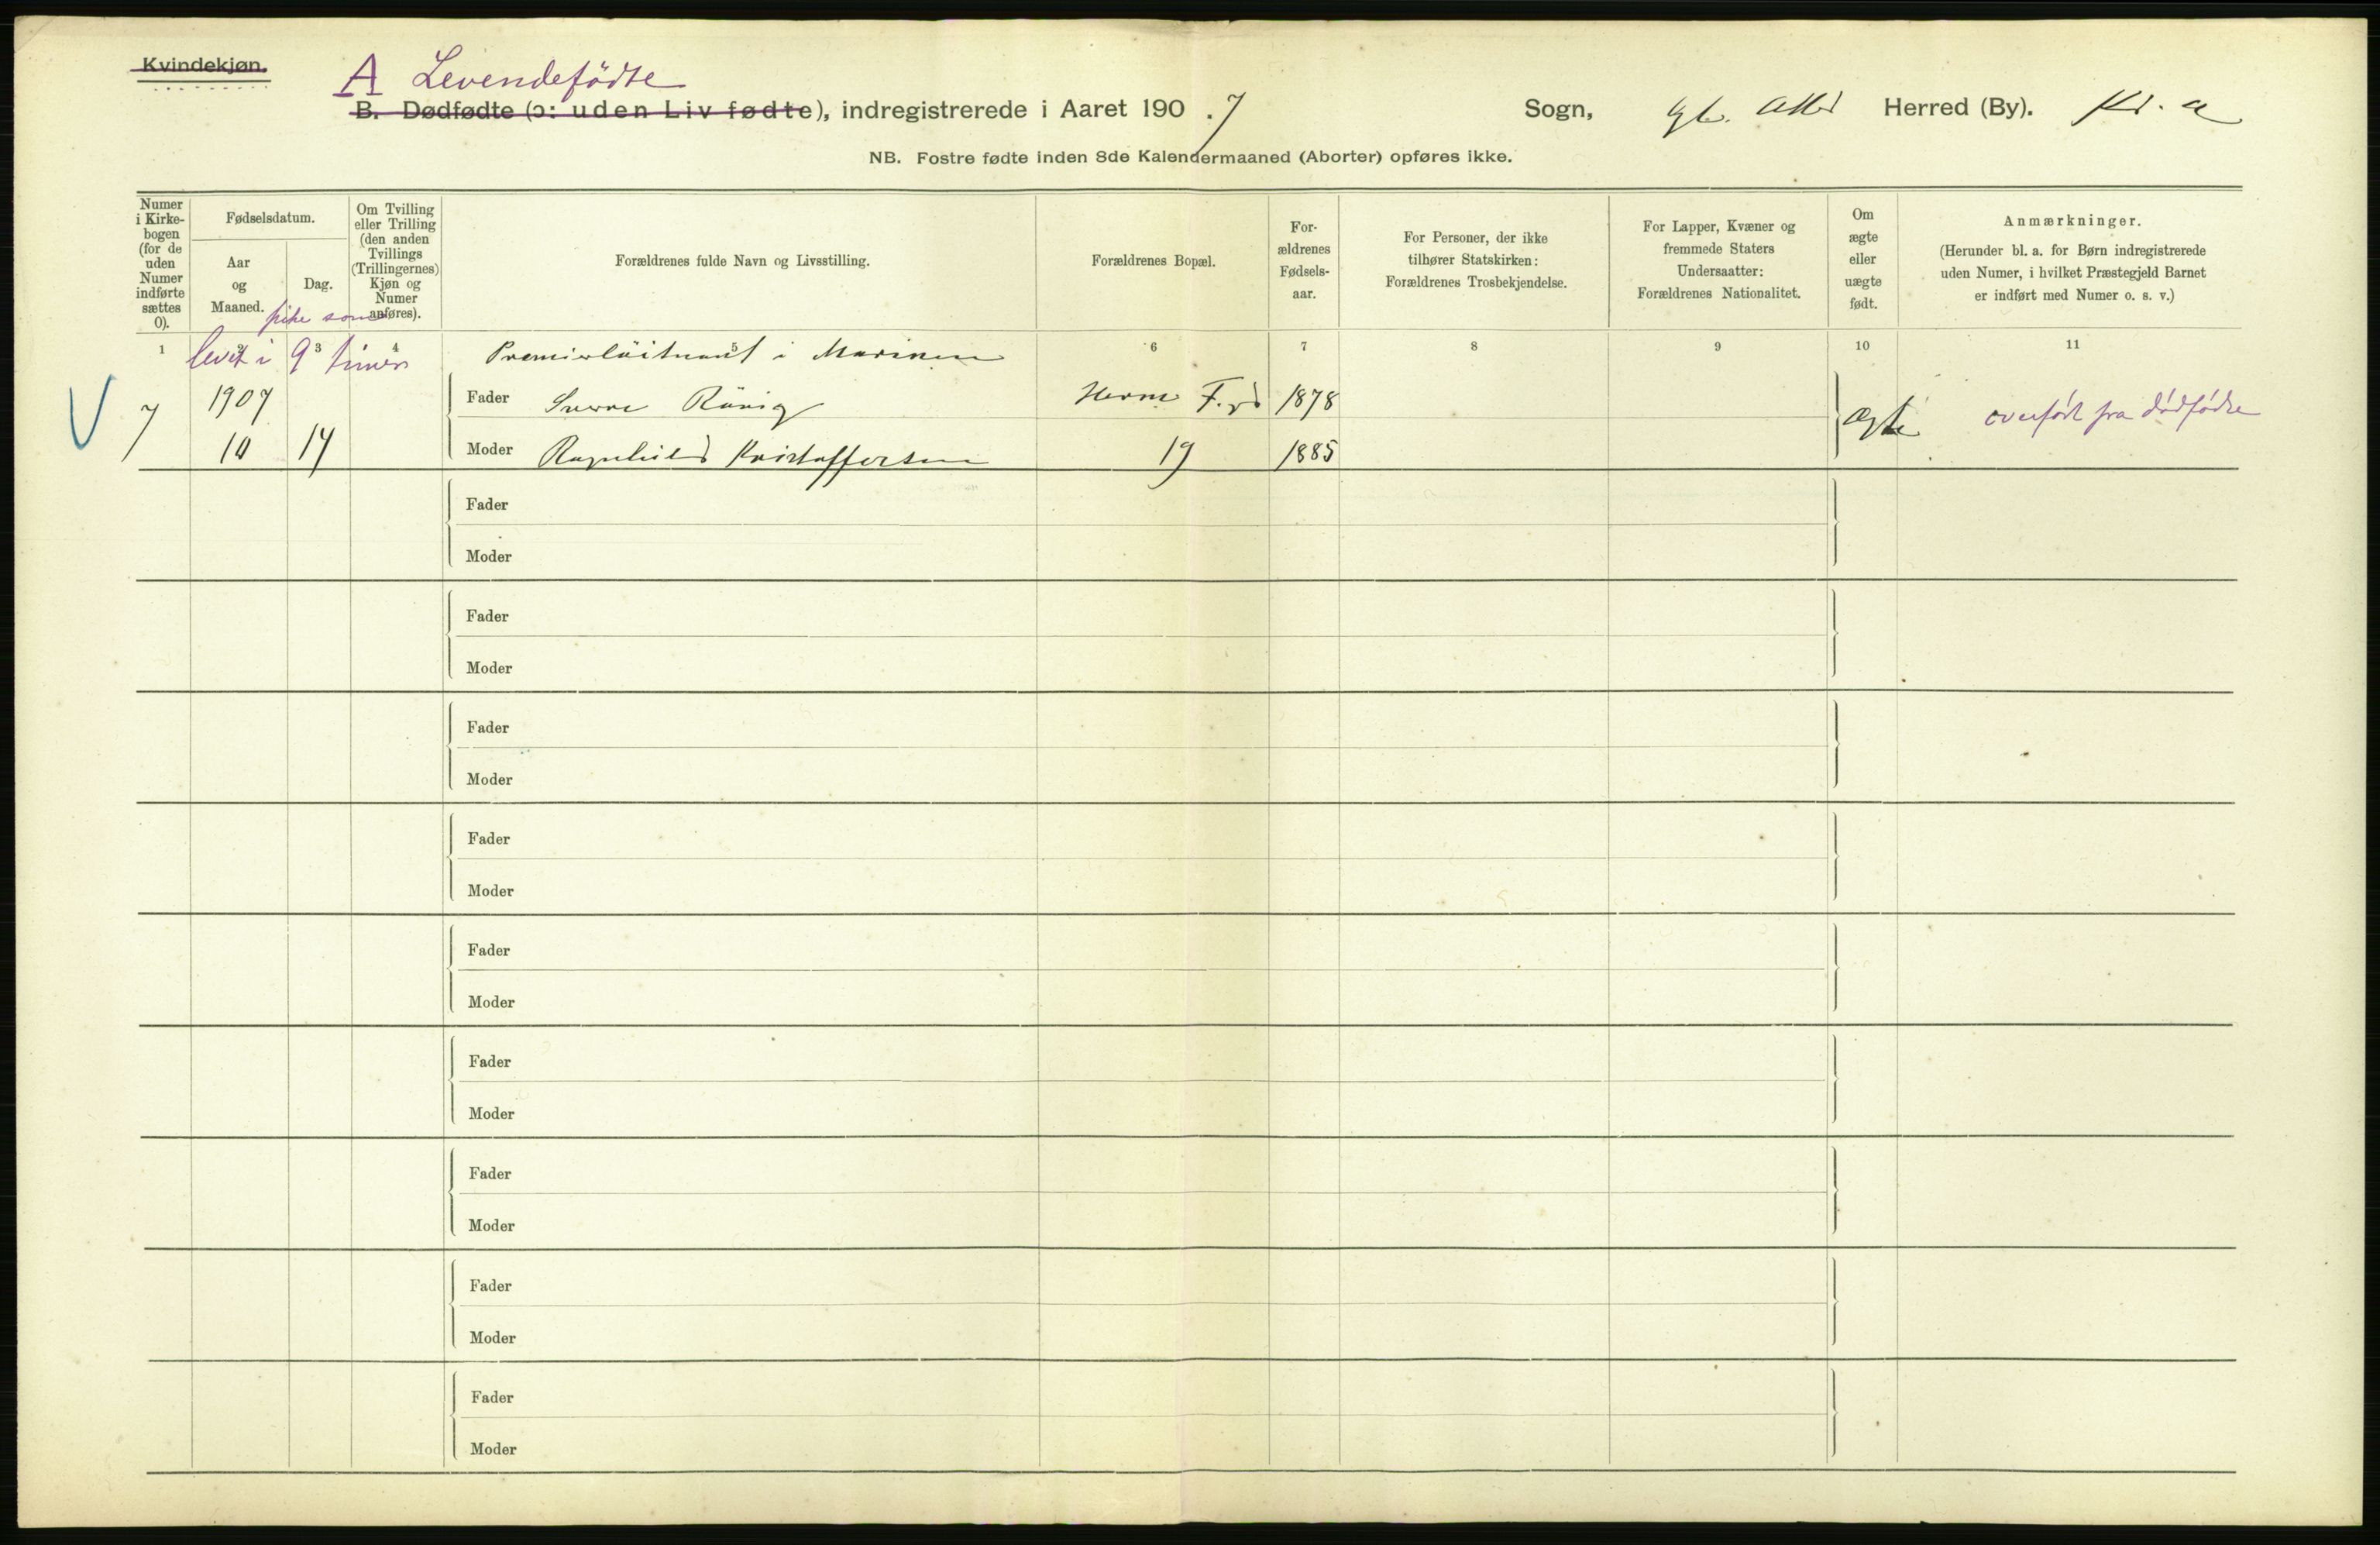 Kvindekjøn.
A Levendefödte
B. Dødfødte (ɔ: uden Liv fødte), indregistrerede i Aaret 190.7 Sogn, Gl. Aker Herred (By). Kr. a
NB. Fostre fødte inden 8de Kalendermaaned (Aborter) opføres ikke.
Numer i Kirke-
bogen
(for de
uden
Numer
indførte
sættes
0).
Fødselsdatum.
Aar
og
Maaned.
Dag.
Om Tvilling
eller Trilling
(den anden
Tvillings
(Trillingernes)
Kjøn og
Numer
anføres).
Forældrenes fulde Navn og Livsstilling.
Forældrenes Bopæl.
For-
ældrenes
Fødsels-
aar.
For Personer, der ikke
tilhører Statskirken:
Forældrenes Trosbekjendelse.
For Lapper, Kvæner og
fremmede Staters
Undersaatter:
Forældrenes Nationalitet.
Om
ægte
eller
uægte
født.
Anmærkninger.
(Herunder bl. a. for Børn indregistrerede
uden Numer, i hvilket Præstegjeld Barnet
er indført med Numer o. s. v.)
pike som
1 2 3 4 5 6 7 8 9 10 11
levet i 9 timer
Premierløitnant i Marinen
7 1907 Fader Sverre Rönig 1878
10 14 Moder Ragnhild Kristoffersen 19 1885
Ægte overført fra dødfødte
Fader
Moder
Fader
Moder
Fader
Moder
Fader
Moder
Fader
Moder
Fader
Moder
Fader
Moder
Fader
Moder
Fader
Moder